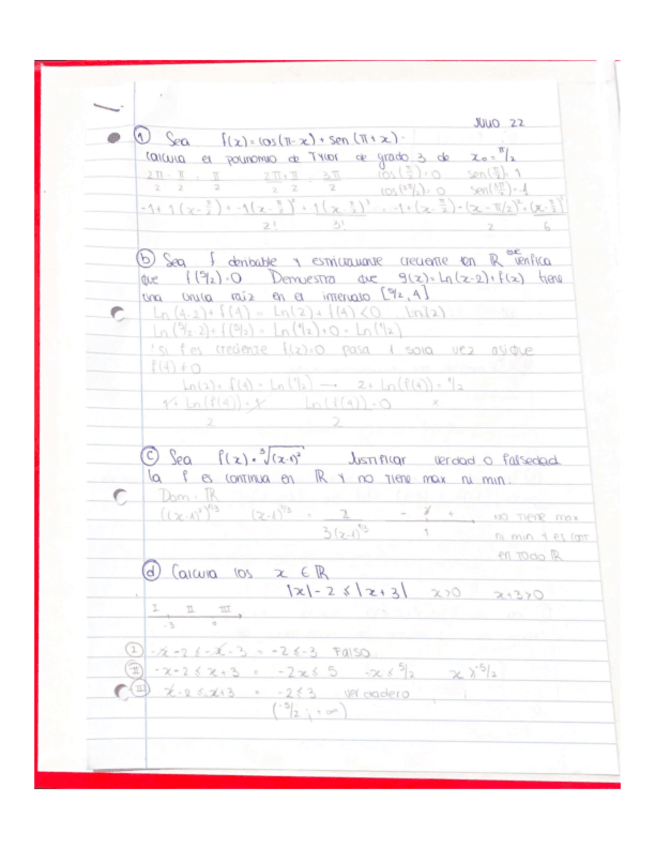 JULIO 22
① Sea f(x) = cos(π-x) + sen(π+x).
Calcula el polinomio de Taylor de grado 3 de x₀ = π/2
2π/2 - π/2 = π/2 2π/2 + π/2 = 3π/2 cos(π/2) = 0 sen(π/2) = 1
cos(3π/2) = 0 sen(3π/2) = -1
2! 3! 2 6
ⓑ Sea f derivable y estrictamente creciente en ℝ se verifica
que f(5/2) = 0 Demuestra que g(x) = Ln(x-2) + f(x) tiene
una unica raiz en el intervalo [5/2, 4]
Ln(4-2) + f(4) = Ln(2) + f(4) < 0 Ln(2)
Ln(5/2-2) + f(5/2) = Ln(1/2) + 0 = Ln(1/2)
si f es creciente f(x)=0 pasa 1 sola vez asique
f(4) ≠ 0
Ln(2) + f(4) = Ln(1/2) → 2 + Ln(f(4)) = 1/2
Ln(f(4)) = 0 x
2 2
ⓒ Sea f(x) = ³√(x-1)² Justificar verdad o falsedad
la f es continua en ℝ y no tiene max ni min.
Dom = ℝ
((x-1)²)^1/3 (x-1)^2/3 = 2 - +
3(x-1)^1/3 1
no tiene max
ni min y es cont
en todo ℝ
ⓓ Calcula los x ∈ ℝ
|x| - 2 ≤ |x+3| x>0 x+3>0
I II III
-3 0
Ⓘ -x-2 ≤ -x-3 = -2 ≤ -3 Falso
Ⓘⓘ -x-2 ≤ x+3 = -2x ≤ 5 -x ≤ 5/2 x ≥ -5/2
Ⓘⓘⓘ x-2 ≤ x+3 = -2 ≤ 3 verdadero
(-5/2 ; +∞)